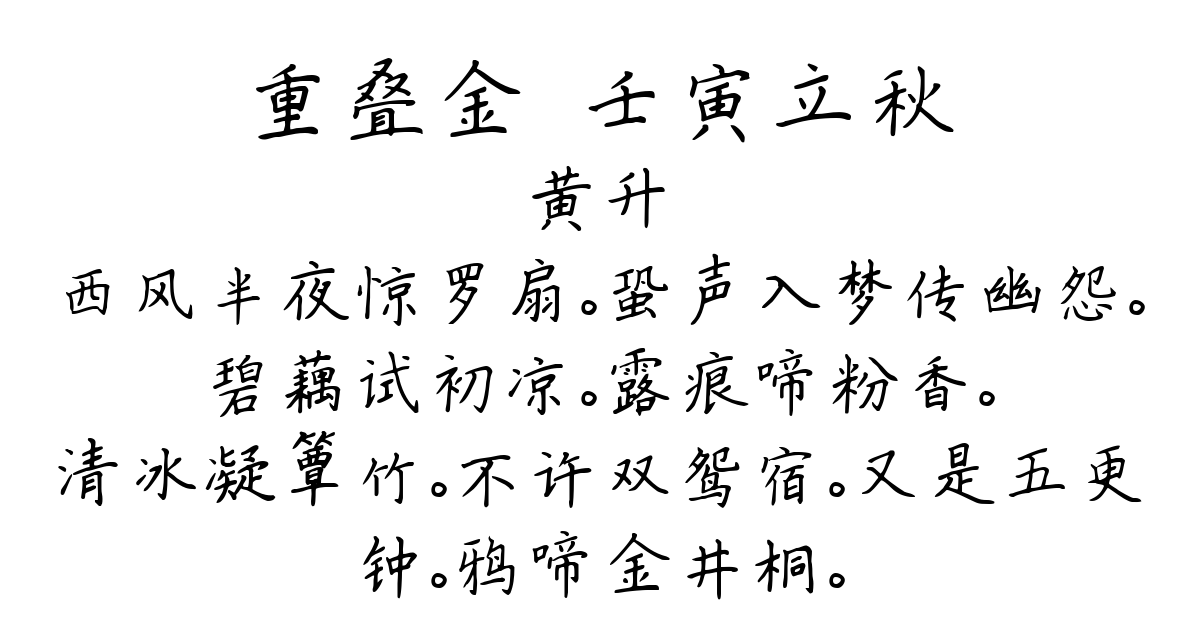 重叠金 壬寅立秋
黄升
西风半夜惊罗扇。蛩声入梦传幽怨。
碧藕试初凉。露痕啼粉香。
清冰凝簟竹。不许双鸳宿。又是五更
钟。鸦啼金井桐。